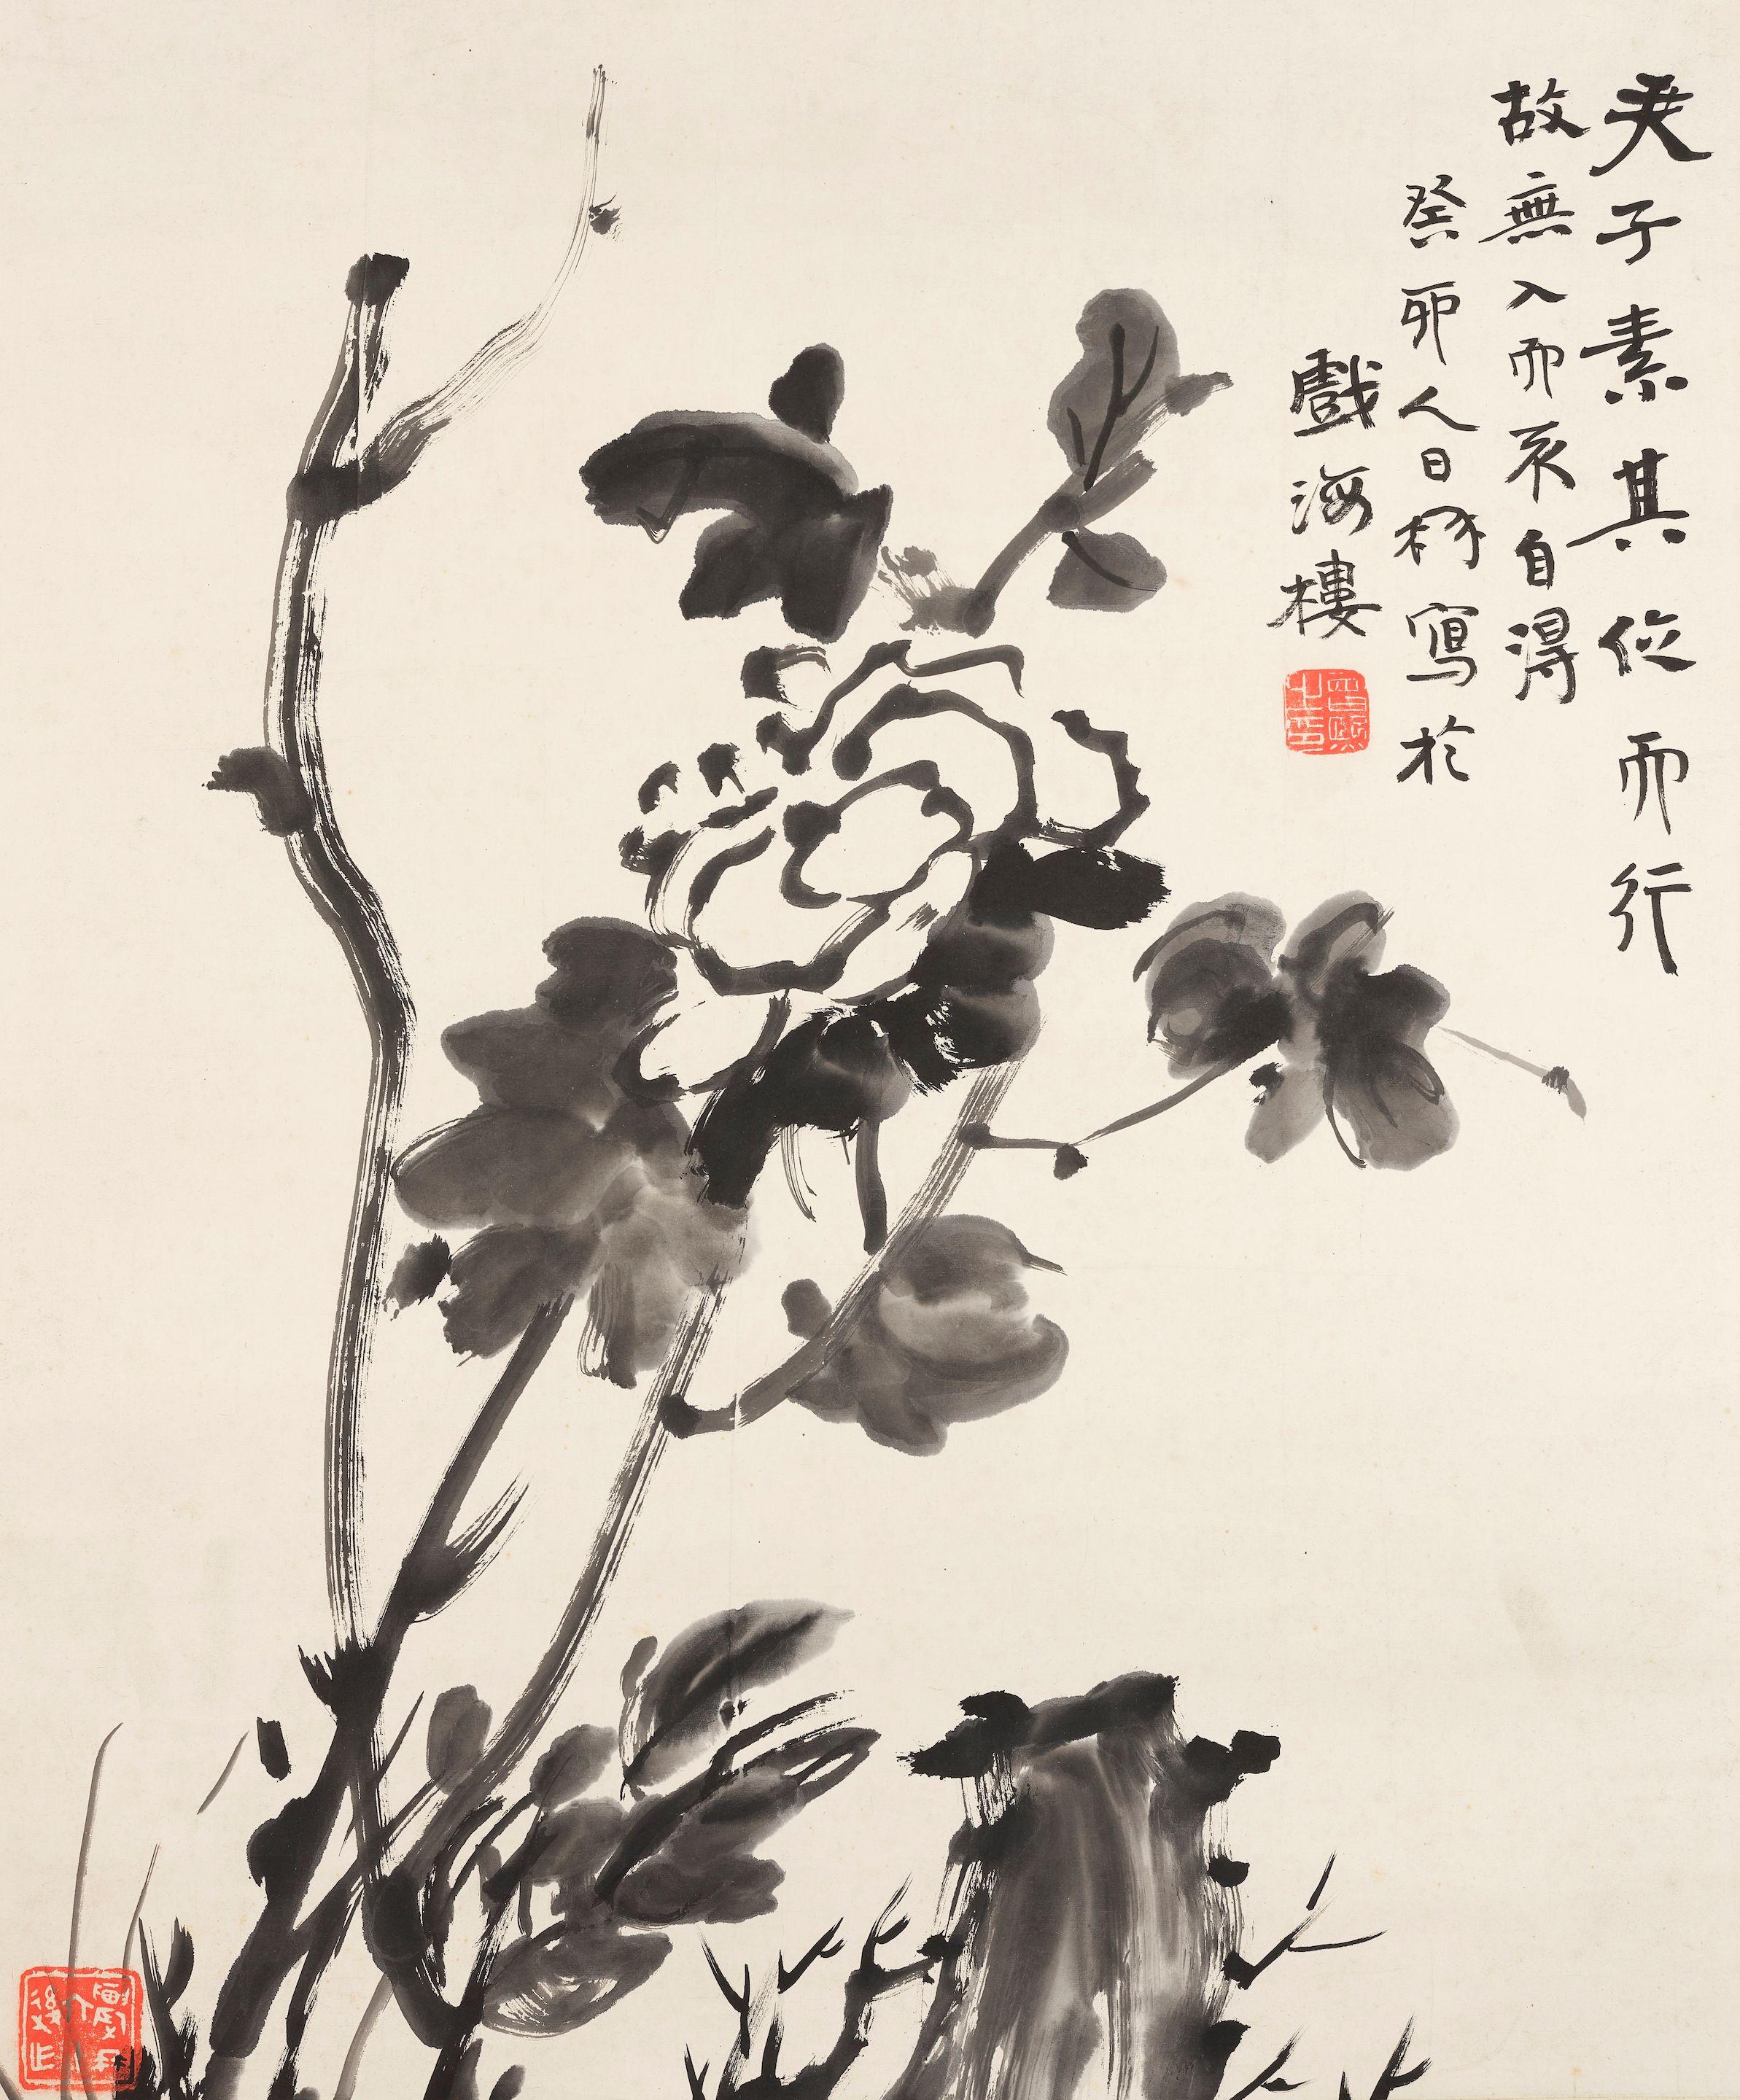 君子素其位而行
故無入而不自得
癸卯人日林寫於
戲海樓